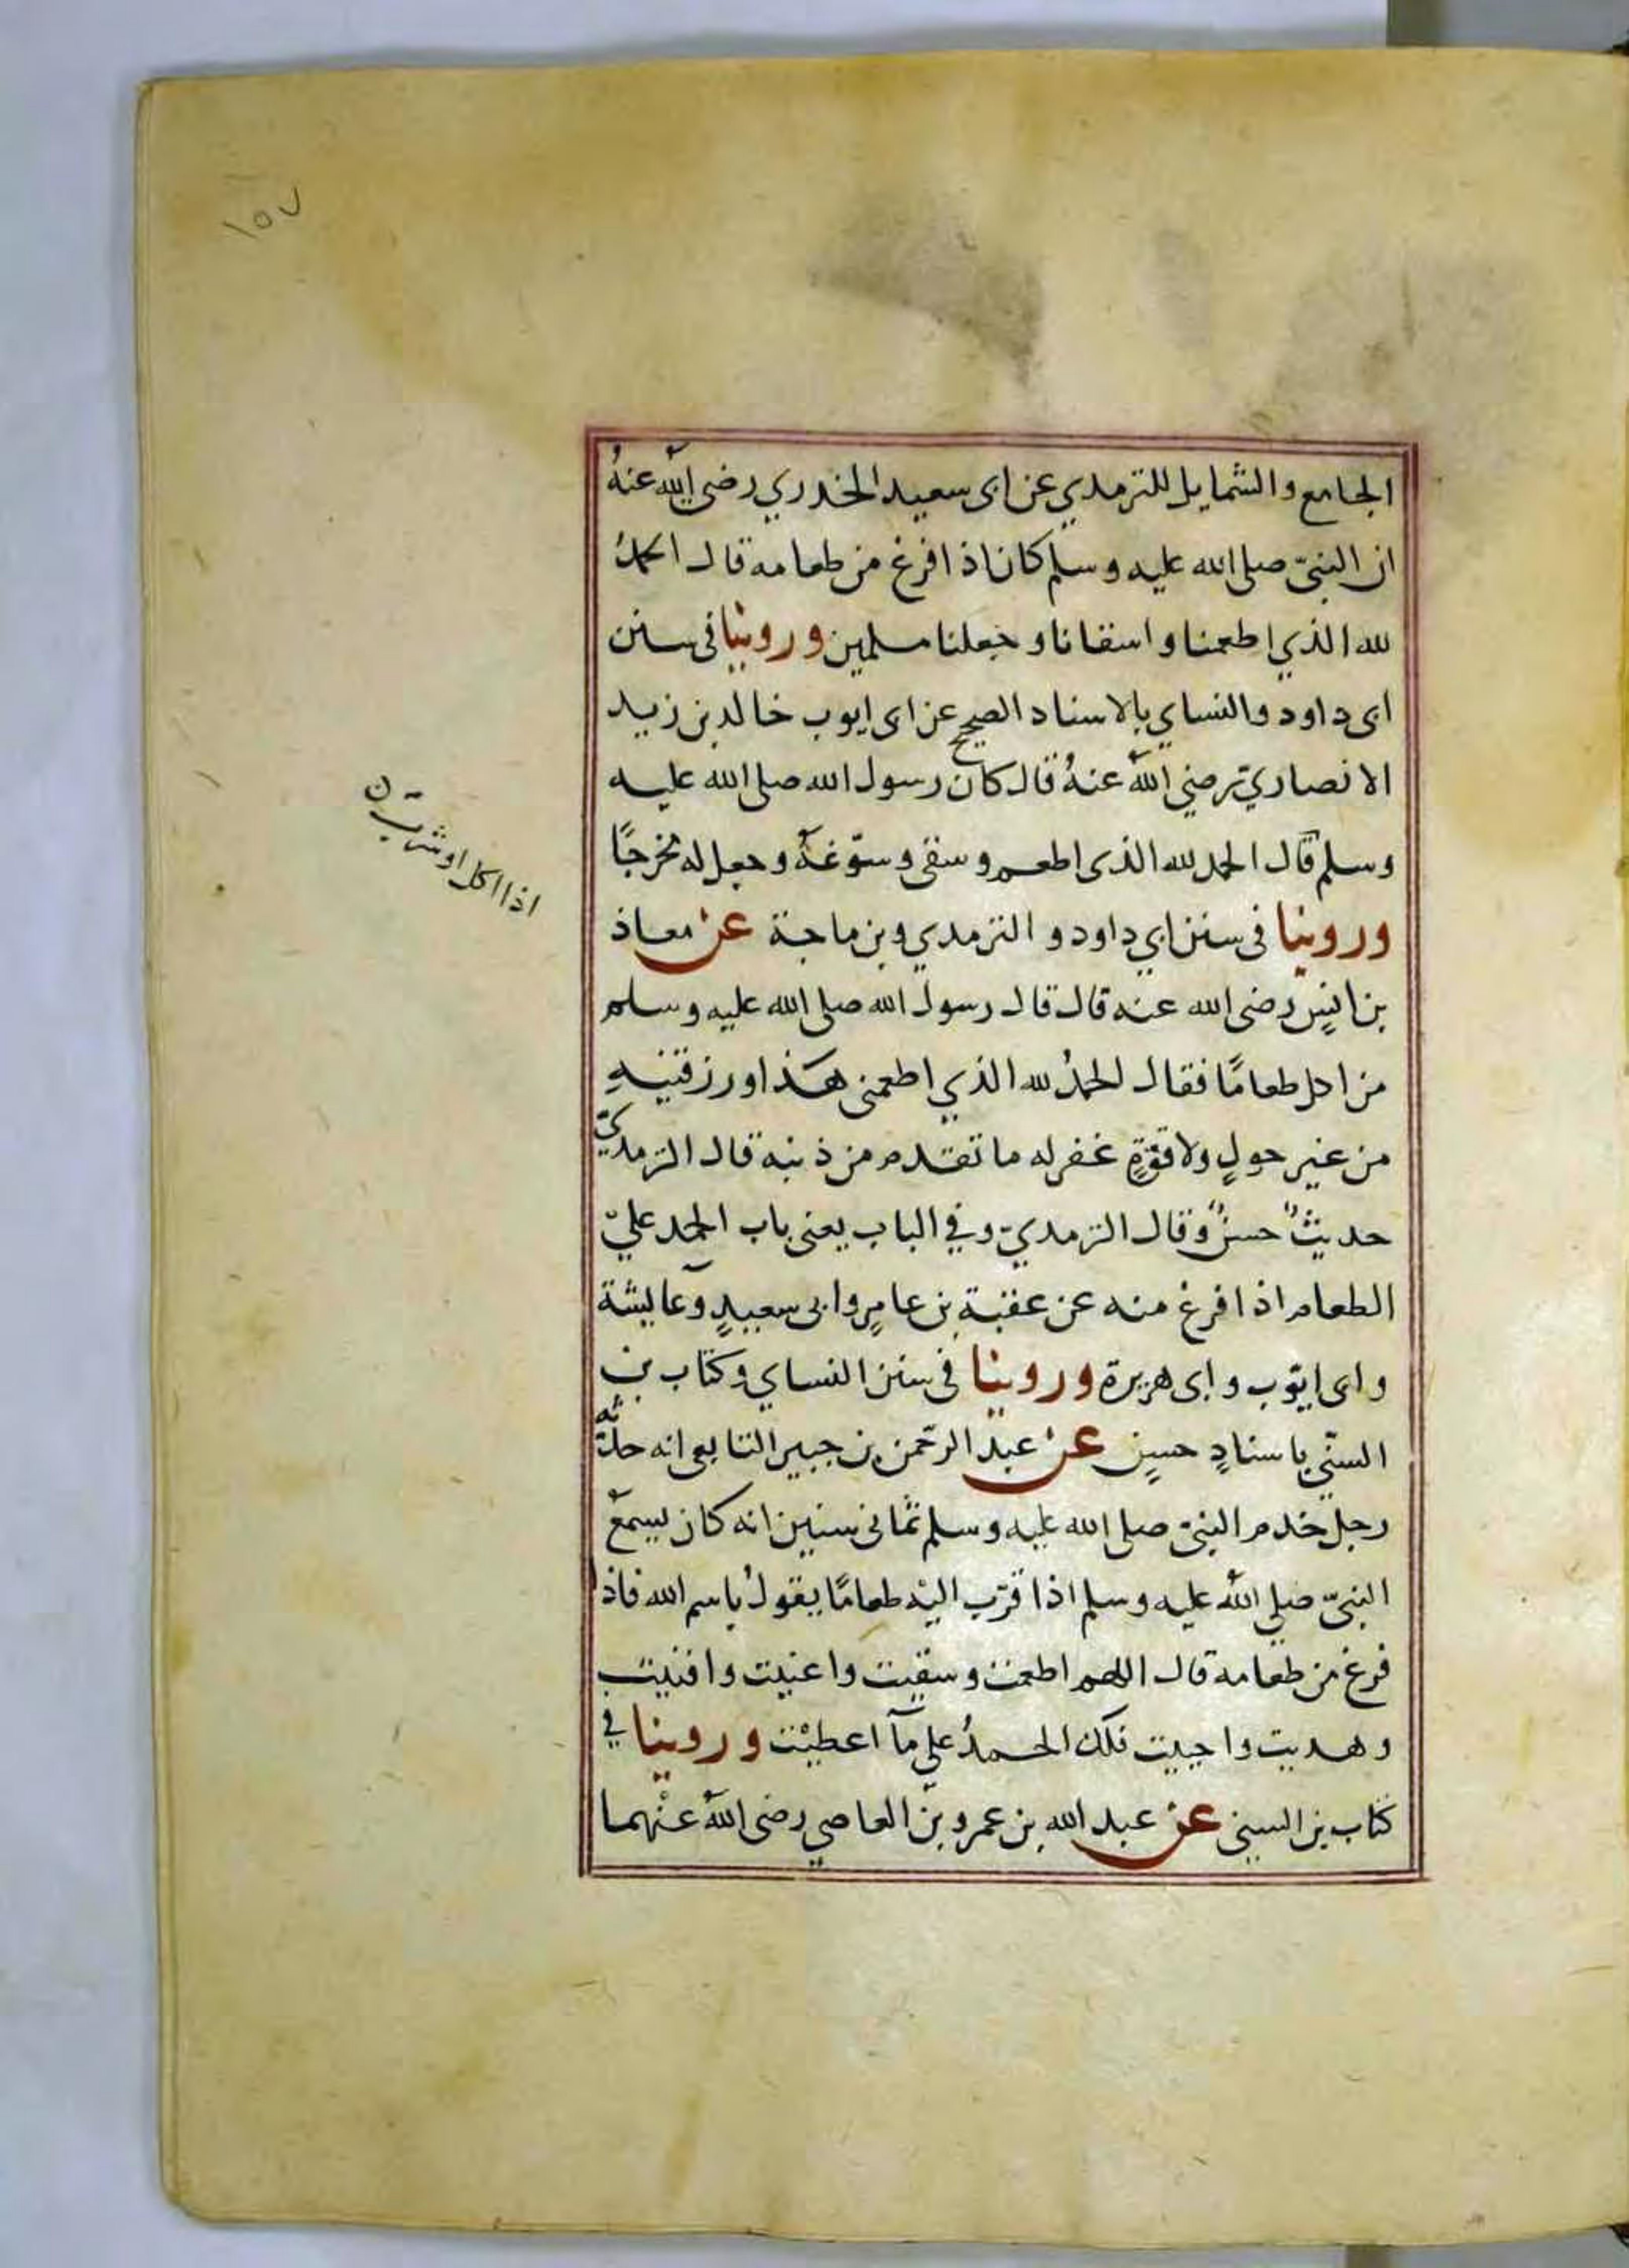 ١٥٧
الجامع والشمايل للترمدي عن ابى سعيد الخدري رضى الله عنهُ
ان النبىّ صلى الله عليه وسلم كان اذا فرغ من طعامه قال الحمدُ
لله الذي اطعمنا واسقانا وجعلنا مسلمين وروينا فى سنن
ابى داود والنساي بالاسناد الصحيح عن ابى ايوب خالد بن زيد
الانصاريّ رضي اللهُ عنهُ قال كان رسول الله صلى الله عليه
اذا اكل او شرب ن
وسلم قال الحمد لله الذى اطعم وسقى وسوّغهُ وجعل له مخرجًا
وروينا فى سنن ابي داود و الترمدي وبن ماجة عن معاذ
بن انيسٍ رضى الله عنه قال قال رسول الله صلى الله عليه وسلم
من اكل طعامًا فقال الحمدُ لله الذي اطعمنى هذا ورزقنيهِ
من غير حولٍ ولا قوّةٍ غفر له ما تقدم من ذنبه قال الترمديّ
حديثٌ حسنٌ وقال الترمديّ وفي الباب يعنى باب الحمد عليّ
الطعام اذا فرغ منه عن عقبة بن عامرٍ وابى سعيدٍ وعايشة
وابى ايّوب وابى هريرة وروينا فى سنن النساي وكتاب بن
السنّي باسنادٍ حسنٍ عن عبد الرّحمن بن جبير التابعى انه حدّثه
رجل خدم النبىّ صلى الله عليه وسلم ثمانى سنين انه كان يسمعُ
النبىّ صلي اللهُ عليه وسلم اذا قرّب اليْه طعامًا يقولُ باسم الله فاذا
فرغ من طعامه قال اللهم اطعمت وسقيت واغنيت واقنيت
وهديت واحييت فلك الحمدُ علي مآ اعطيْت وروينا في
كتاب بن السيني عن عبد الله بن عمرو بن العاصي رضى اللهُ عنْهما